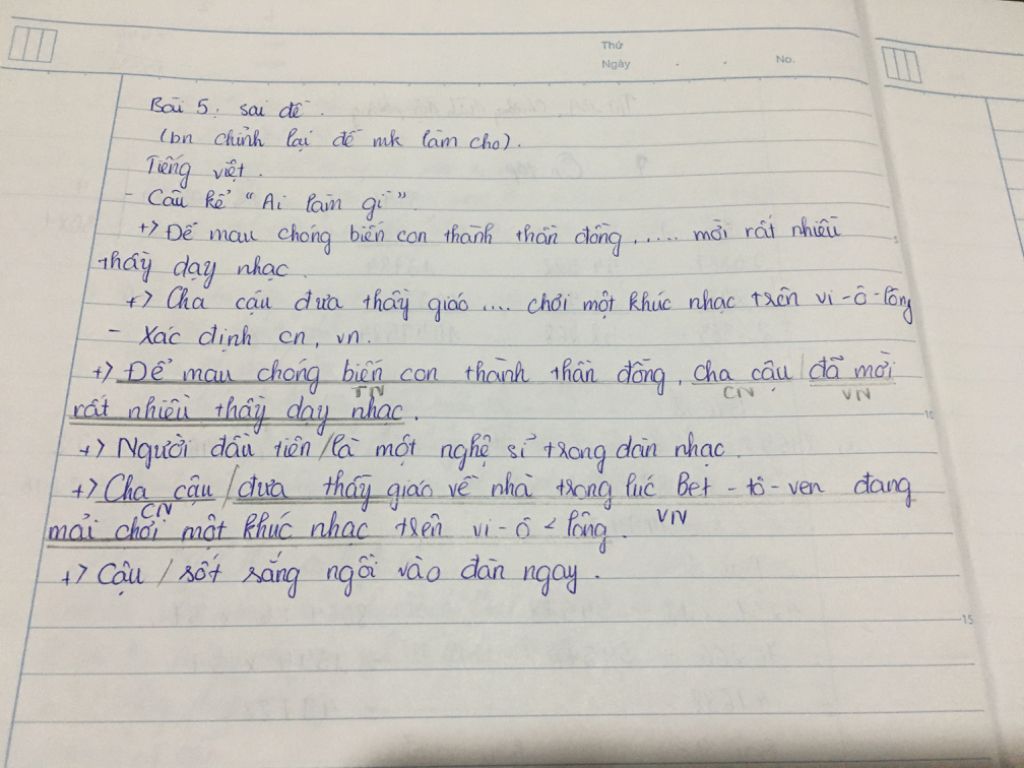 Thứ
Ngày . . No.
Bài 5: sai đề.
(bn chỉnh lại đề mk làm cho).
Tiếng việt.
- Câu kể "Ai làm gì".
+> Để mau chóng biến con thành thần đồng, ..... mời rất nhiều
thầy dạy nhạc.
+> Cha cậu đưa thầy giáo .... chơi một khúc nhạc trên vi-ô-lông
- Xác định cn, vn.
+> Để mau chóng biến con thành thần đồng, cha cậu / đã mời
TN CN VN
rất nhiều thầy dạy nhạc.
10
+> Người đầu tiên / là một nghệ sĩ trong dàn nhạc.
+> Cha cậu / đưa thầy giáo về nhà trong lúc Bet-tô-ven đang
CN VN
mải chơi một khúc nhạc trên vi-ô-lông.
+> Cậu / sốt sắng ngồi vào đàn ngay.
15